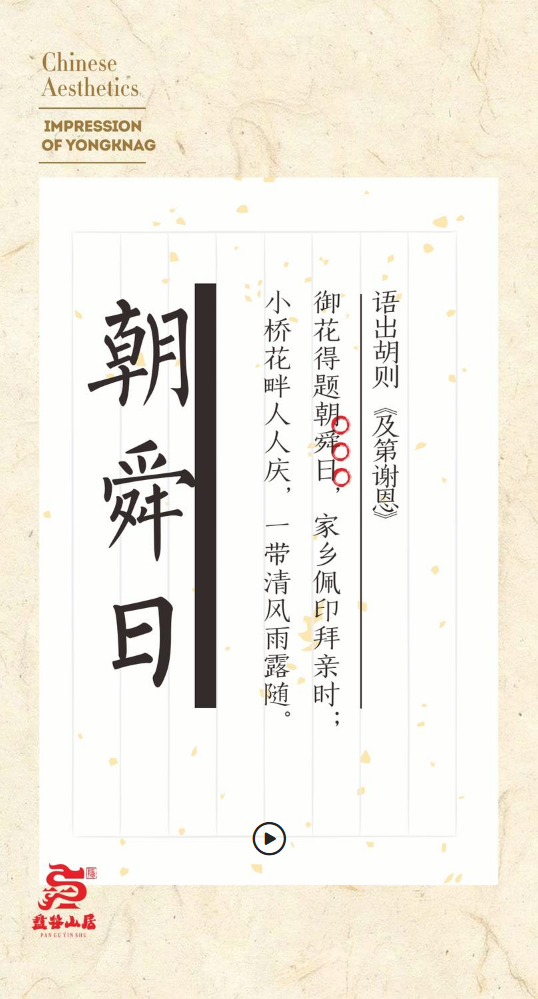 Chinese
Aesthetics
IMPRESSION
OF YONGKNAG
语出胡则《及第谢恩》
御花得题朝舜日，家乡佩印拜亲时；
小桥花畔人人庆，一带清风雨露随。
朝舜日
盘谷山居
PAN GU YIN SHU